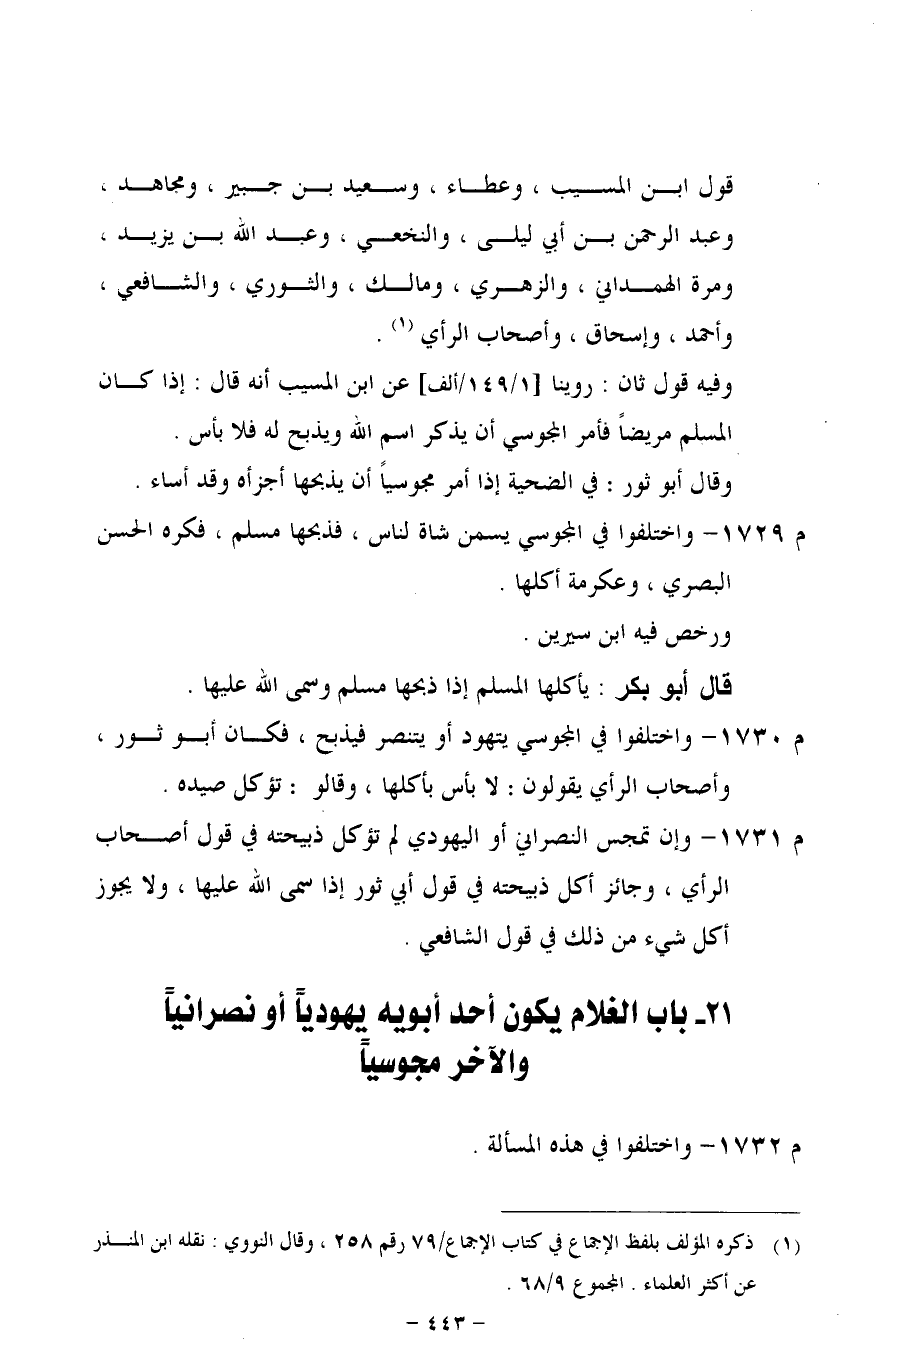 قول ابن المسيب ، وعطاء ، وسعيد بن جبير ، ومجاهد ،
وعبد الرحمن بن أبي ليلى ، والنخعي ، وعبد الله بن يزيد ،
ومرة الهمداني ، والزهري ، ومالك ، والثوري ، والشافعي ،
وأحمد ، وإسحاق ، وأصحاب الرأي (١) .
وفيه قول ثان : روينا [١/١٤٩/ألف] عن ابن المسيب أنه قال : إذا كان
المسلم مريضاً فأمر المجوسي أن يذكر اسم الله ويذبح له فلا بأس .
وقال أبو ثور : في الضحية إذا أمر مجوسياً أن يذبحها أجزأه وقد أساء .
م ١٧٢٩- واختلفوا في المجوسي يسمن شاة لناس ، فذبحها مسلم ، فكره الحسن
البصري ، وعكرمة أكلها .
ورخص فيه ابن سيرين .
قال أبو بكر : يأكلها المسلم إذا ذبحها مسلم وسمى الله عليها .
م ١٧٣٠- واختلفوا في المجوسي يتهود أو يتنصر فيذبح ، فكان أبو ثور ،
وأصحاب الرأي يقولون : لا بأس بأكلها ، وقالو : تؤكل صيده .
م ١٧٣١- وإن تمجس النصراني أو اليهودي لم تؤكل ذبيحته في قول أصحاب
الرأي ، وجائز أكل ذبيحته في قول أبي ثور إذا سمى الله عليها ، ولا يجوز
أكل شيء من ذلك في قول الشافعي .
٢١ـ باب الغلام يكون أحد أبويه يهودياً أو نصرانياً
والآخر مجوسياً
م ١٧٣٢- واختلفوا في هذه المسألة .
(١) ذكره المؤلف بلفظ الإجماع في كتاب الإجماع/٧٩ رقم ٢٥٨ ، وقال النووي : نقله ابن المنذر
عن أكثر العلماء . المجموع ٦٨/٩ .
- ٤٤٣ -